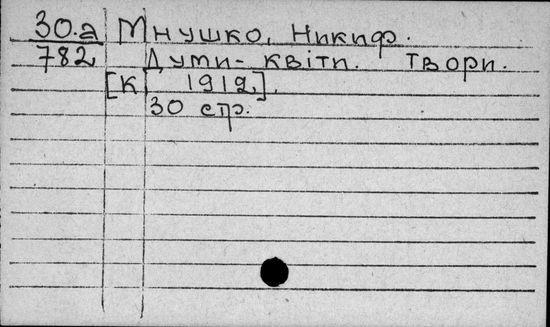 30.a Мнушко, Никиф.
782 Думи-квіти. Твори.
[К, 1912,].
30 стр.